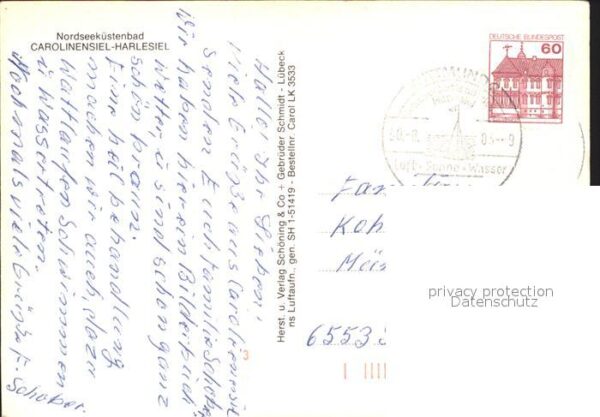 Nordseeküstenbad
CAROLINENSIEL-HARLESIEL
Hallo Ihr Lieben!
Viele Grüße aus Carolinensiel
senden Euch Familie Schober
Wir haben hier ein Bilderbuch
wetter, u. sind schon ganz
schön braun.
Eine heilbehandlung
machen wir auch, dazu
Wattlaufen Schwimmen
u. Wassertreten.
Nochmals viele Grüße F.
Schober.
Herst. u. Verlag Schöning & Co + Gebrüder Schmidt - Lübeck
ns Luftaufn., gen. SH 1-51419 - Bestellnr. Carol LK 3533
DEUTSCHE BUNDESPOST
60
Luft · Sonne · Wasser
Koh
6553
3
privacy protection
Datenschutz